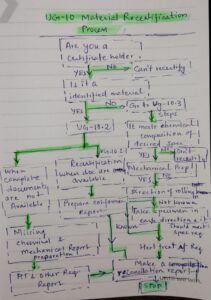 UG-10 Material Recertification
Process
Are you a
Certificate holder
NO
Can't recertify
YES
Is it a
identified material
NO
Go to UG-10.3
YES
Steps
UG-10.2
Is mate chemical
composition of
desired spec
When
complete
documents
are not
Available
Recertification
when doc are
available
Can't
recertify
Mechanical Prop
Direction of rolling
Not known
Prepare Conformal
Report
known
Take specimen in
each direction & it
Should meet
spec req
Missing
chemical &
mechanical Report
preparation
Heat treat Af Req
PT & other Reqr
Report
Make a
report
STOP